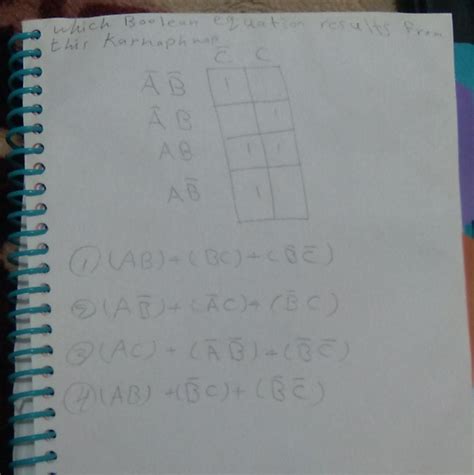 which Boolean equation results from
this Karnaphmap
C̅ C
A̅ B̅ 1
A̅ B 1
A B 1 1
A B̅ 1
① (AB)+(BC)+(B̅ C̅)
② (A B̅)+(A̅ C)+(B̅ C)
③ (AC)+(A̅ B̅)+(B̅ C̅)
④ (AB)+(B̅ C)+(B̅ C̅)